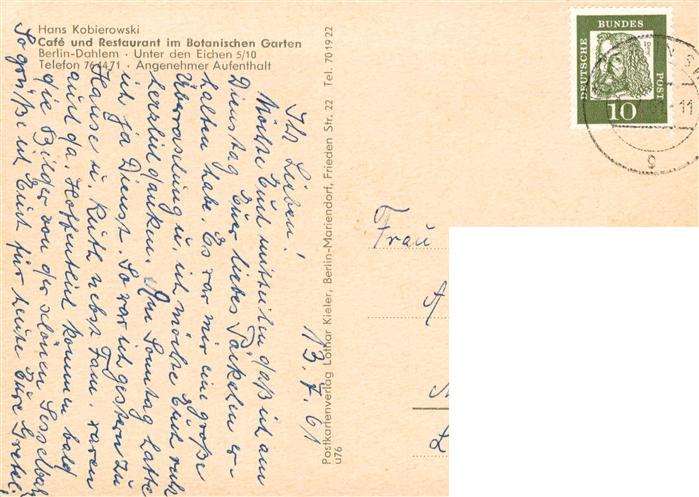 Hans Kobierowski
Café und Restaurant im Botanischen Garten
Berlin-Dahlem · Unter den Eichen 5/10
Telefon 764471 · Angenehmer Aufenthalt
13.5.61
Ihr Lieben!
Möchte Euch mitteilen daß ich am
Dienstag Euer liebes Päckchen er-
halten habe. Es war mir eine große
Überraschung u. ich möchte Euch
herzlich danken. Am Sonntag hatte
ich ja Dienst. So war ich gestern zu
Hause u. Ruth nebst Fam. waren
auch da. Hoffentlich kommen bald
die Bilder von der schönen
So grüße ich Euch für heute Eure
Postkartenverlag Lothar Kieler, Berlin-Mariendorf, Frieden Str. 22 Tel. 701922
u76
DEUTSCHE
BUNDES
POST
10
Frau